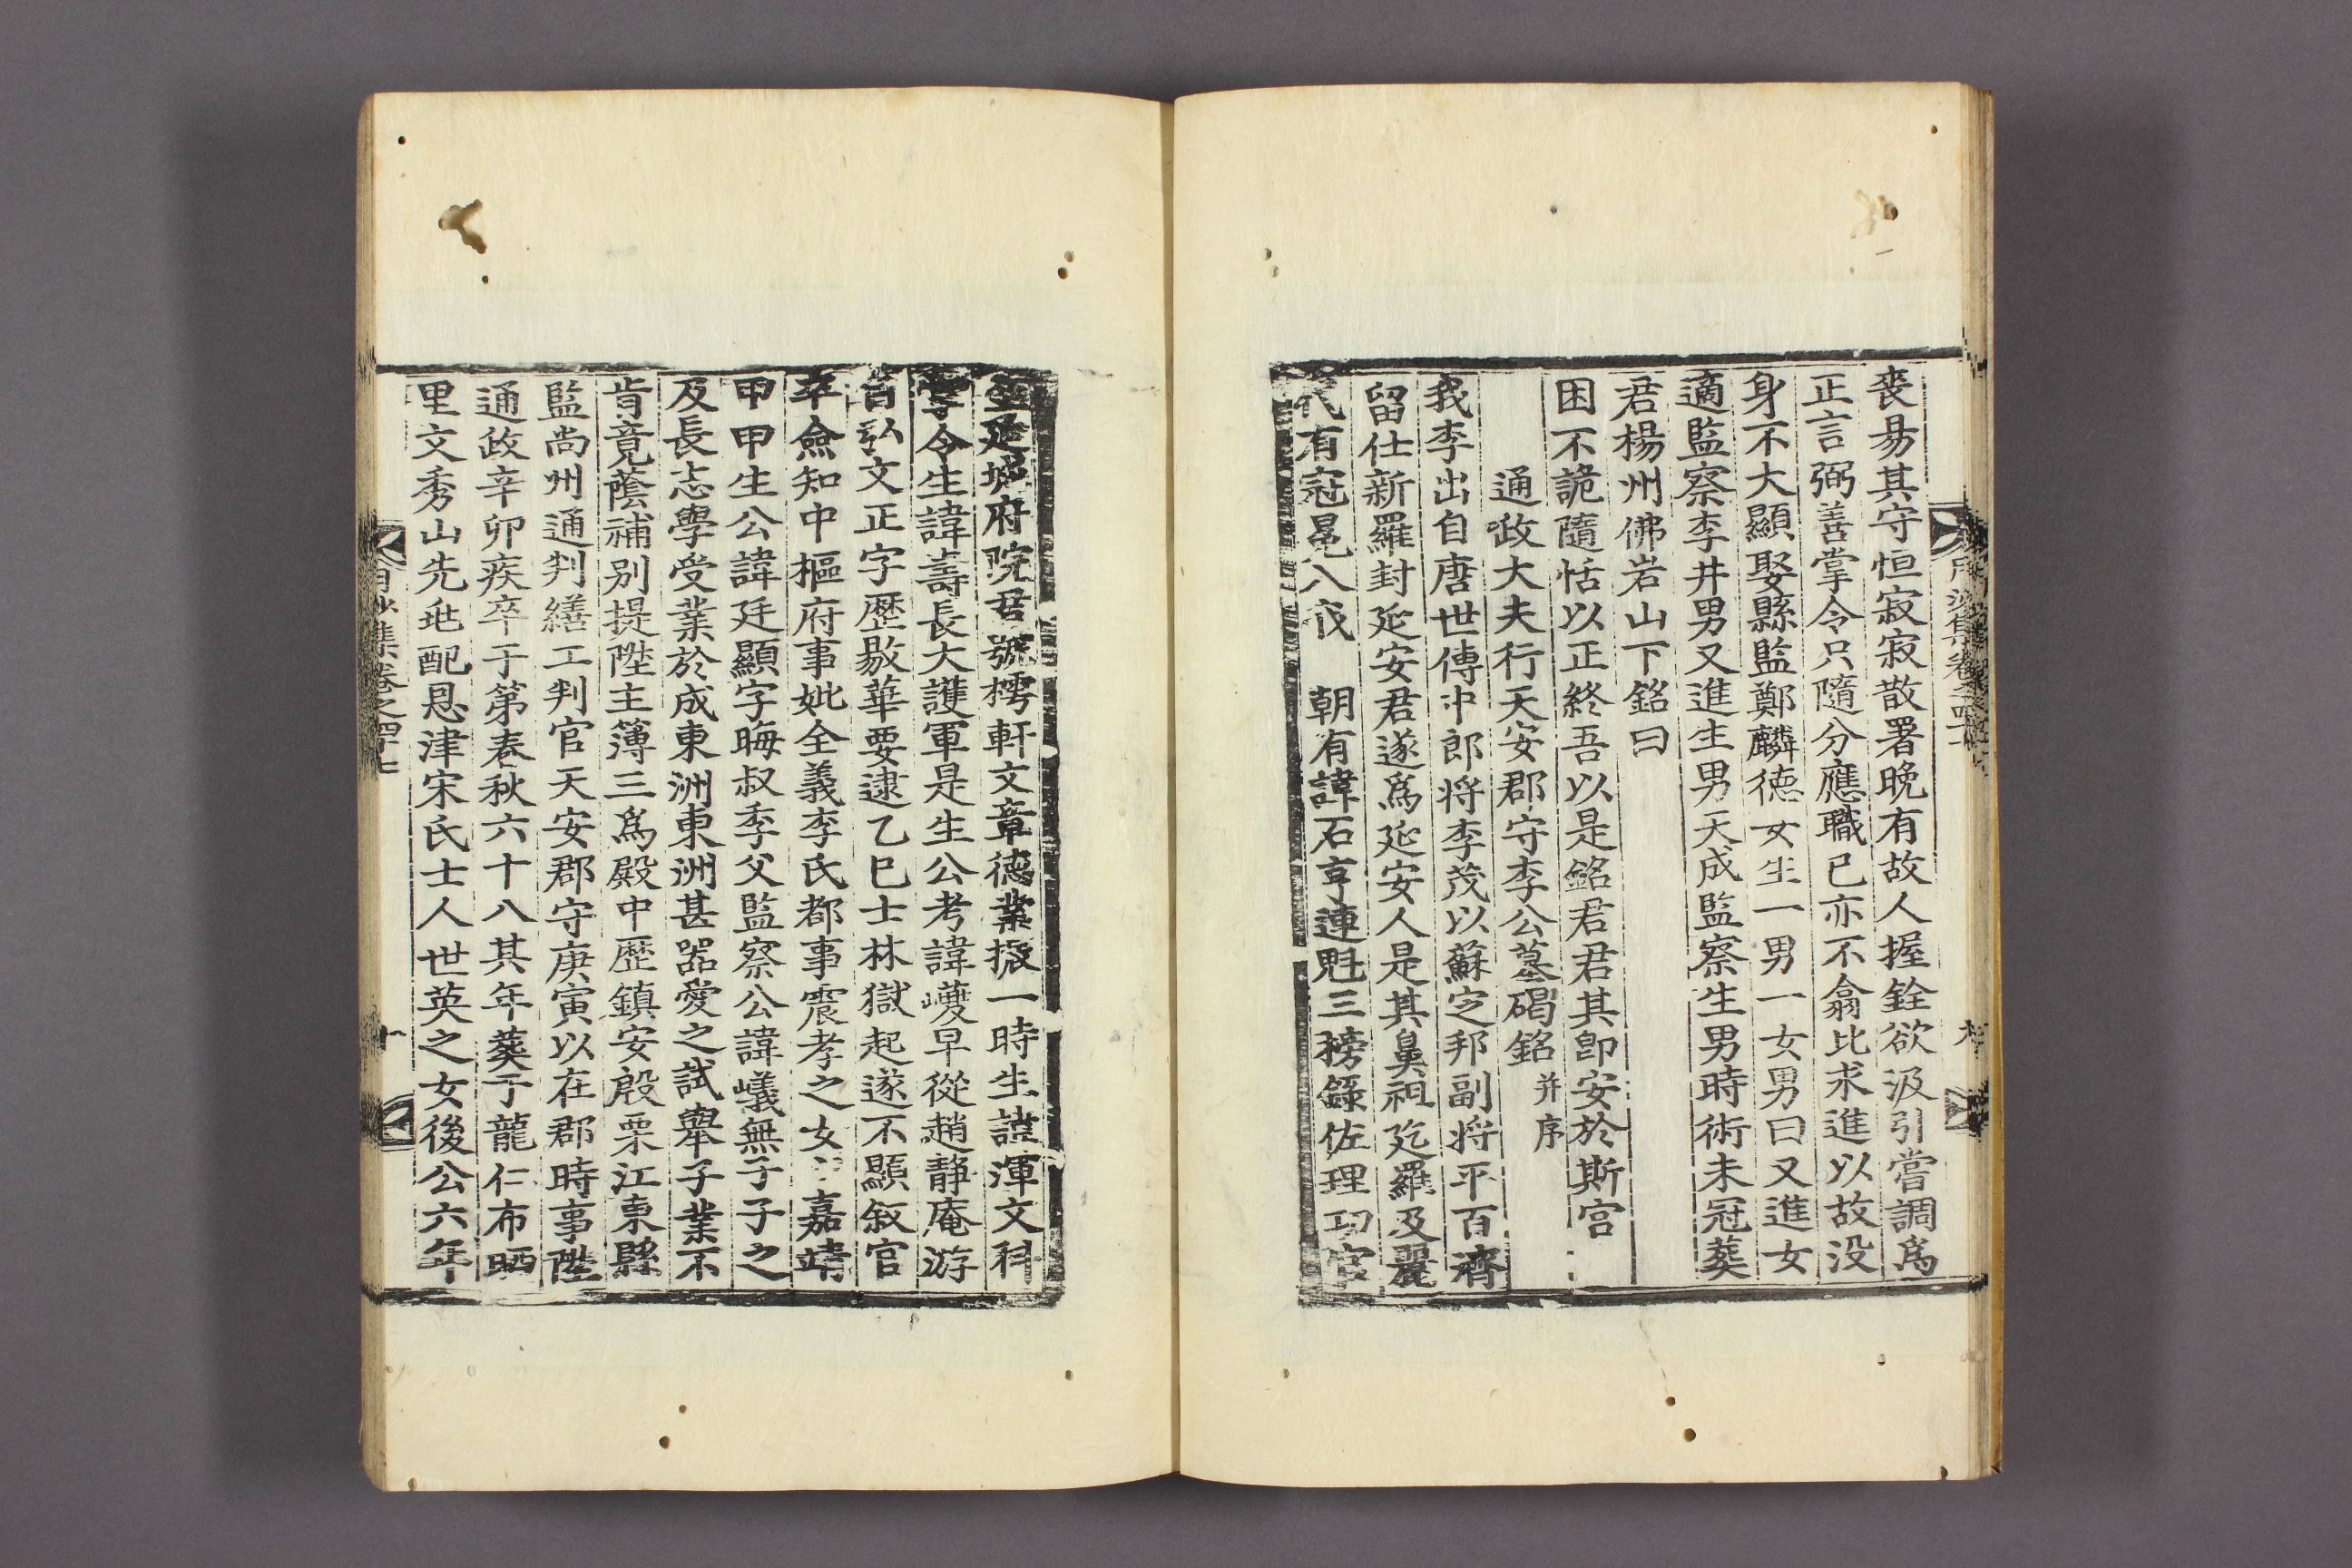 喪易其守恒寂寂散署晚有故人握銓欲汲引嘗調爲
正言弼善掌令只隨分應職已亦不翕比求進以故没
身不大顯娶縣監鄭麟德女生一男一女男曰又進女
適監察李井男又進生男天成監察生男時術未冠葬
君楊州佛岩山下銘曰
困不詭隨恬以正終吾以是銘君君其卽安於斯宮
通政大夫行天安郡守李公墓碣銘并序
我李出自唐世傳中郎将李茂以蘇定邦副将平百濟
留仕新羅封延安君遂爲延安人是其鼻祖訖羅及麗
代有冠冕入我 朝有諱石亨連魁三榜錄佐理功官
至延城府院君號樗軒文章德業掀一時生諱渾文科
掌令生諱壽長大護軍是生公考諱巙早從趙靜庵游
旨弘文正字歷敭華要逮乙巳士林獄起遂不顯敘官
卒僉知中樞府事妣全義李氏都事震孝之女嘉靖
甲甲生公諱廷顯字晦叔季父監察公諱巇無子子之
及長志學受業於成東洲東洲甚器愛之試舉子業不
肯竟蔭補別提陞主簿三爲殿中歷鎮安殷栗江東縣
監尚州通判繕工判官天安郡守庚寅以在郡時事陞
通政辛卯疾卒于第春秋六十八其年葬于龍仁布晒
里文秀山先兆配恩津宋氏士人世英之女後公六年
月沙集卷之四十七
十